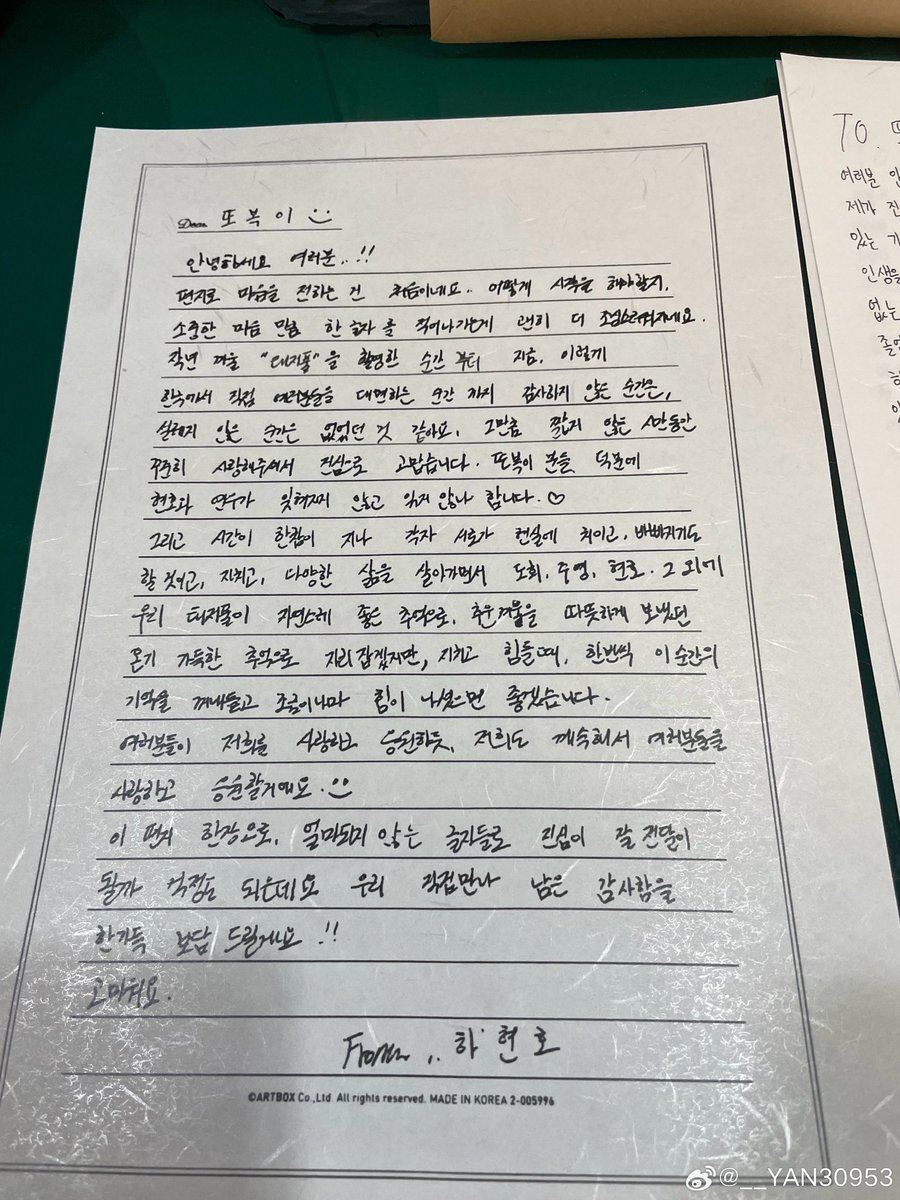 Dear. 또복이
안녕하세요 여러분..!!
편지로 마음을 전하는 건 처음이네요. 어떻게 시작을 해야할지,
소중한 마음 만큼 한 글자를 적어나가는게 괜히 더 조심스러워지네요.
작년 겨울 "태지풍"을 촬영한 순간 부터 지금, 이렇게
한국에서 직접 여러분들을 대면하는 순간 까지 감사하지 않은 순간은,
설레지 않은 순간은 없었던 것 같아요. 그만큼 짧지 않은 시간동안
꾸준히 사랑해주셔서 진심으로 고맙습니다. 또복이 분들 덕분에
현호과 연우가 잊혀지지 않고 잊지 않나 합니다.♡
그리고 시간이 한참이 지나 각자 서로가 현실에 치이고, 바빠지기도
할 것이고, 지치고, 다양한 삶을 살아가면서 도회, 주영, 현호. 그 외에
우리 태지풍이 자연스레 좋은 추억으로, 추운겨울을 따뜻하게 보냈던
온기 가득한 추억으로 자리 잡겠지만, 지치고 힘들때, 한번씩 이 순간의
기억을 꺼내들고 조금이나마 힘이 나셨으면 좋겠습니다.
여러분들이 저희를 사랑하고 응원하듯, 저희도 계속해서 여러분들을
사랑하고 응원할거예요.
이 편지 한장으로, 얼마되지 않는 글자들로 진심이 잘 전달이
될까 걱정도 되은데요 우리 직접만나 남은 감사함을
한가득 보답 드릴게요!!
고마워요.
From.. 하현호
©ARTBOX Co.,Ltd. All rights reserved. MADE IN KOREA 2-005996
TO.
여러분
제가 진
있는 기
인생을
없는
졸업
@__YAN30953